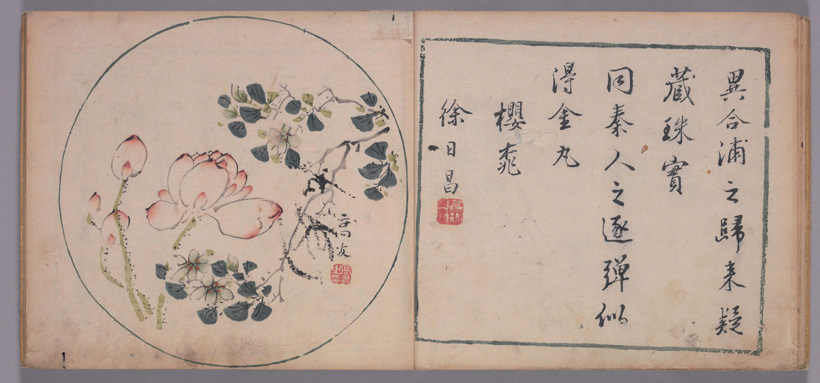 異合浦之歸来疑
藏珠實
同秦人之逐彈似
得金丸
櫻桃
徐日昌
高友